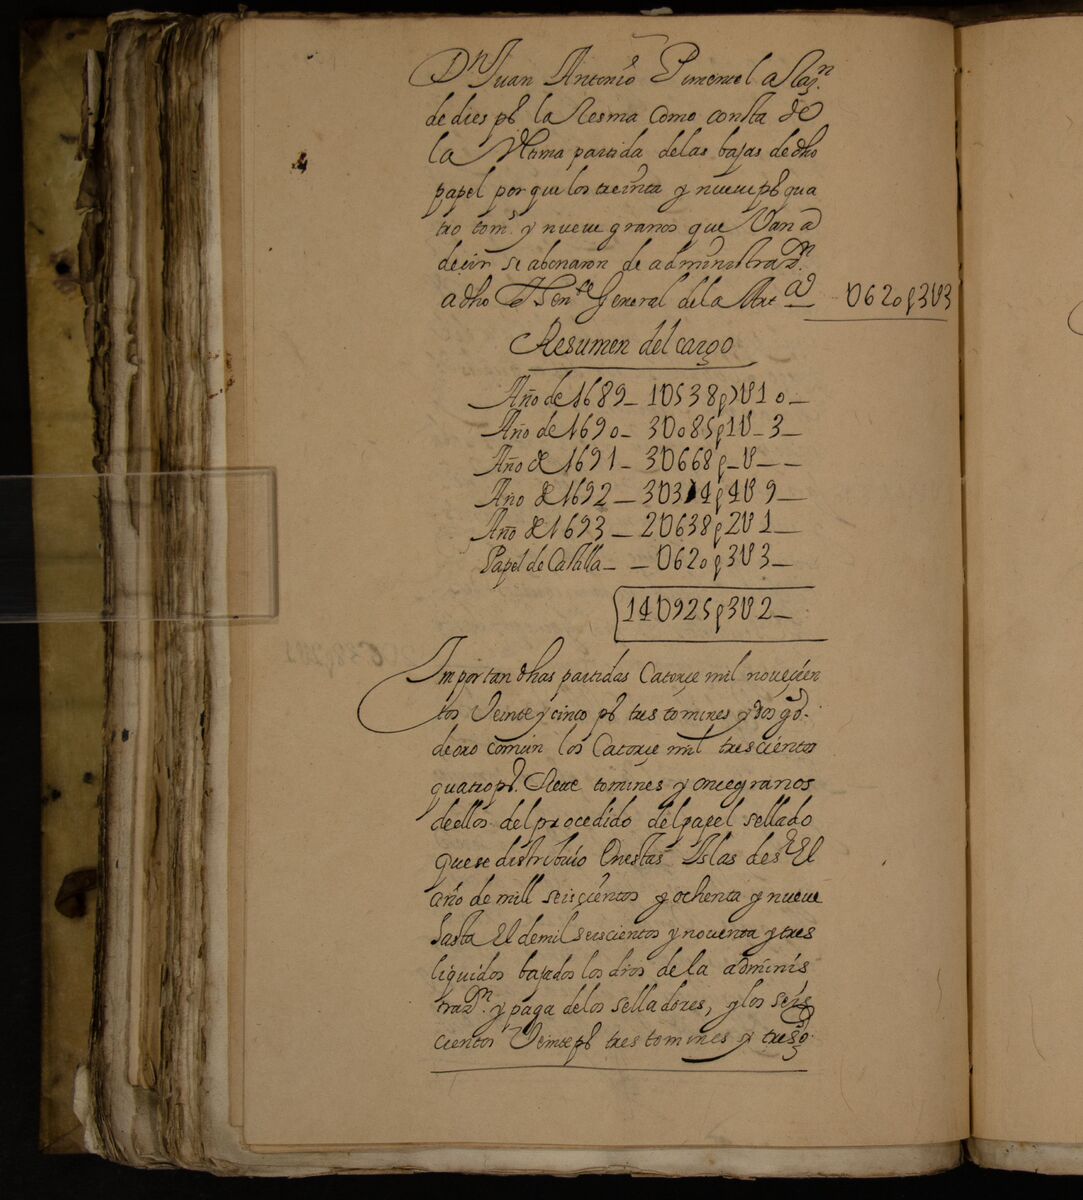 Dn Juan Antonio Pimentel a Razn
de dies ps la Resma como consta de
la Vltima partida delas bajas de dho
papel por que los treinta y nueue ps qua
tro toms y nueue granos que Van a
decir se abonaron de administrazn
a dho Thente General de la Arta U620p3U3
Resumen del cargo
Año de 1689 1U538p U10
Año de 1690 3U085p1U 3
Año de 1691 3U668p U
Año de 1692 3U314p4U9
Año de 1693 2U638p2U1
Papel de Castilla U620p3U3
14U925p3U2
Importan dhas partidas Catorçe mil noueçien
tos Veinte y cinco ps tres tomines y dos gos
de oro común los Catorçe mil trescientos
quatro ps siete tomines y onçe granos
de ellos del procedido del papel sellado
que se distribuío En estas Islas desde El
año de mill seisçientos y ochenta y nueue
hasta El de mil seiscientos y nouenta y tres
liquidos bajados los dros de la adminis
trazn y paga de los selladores, y los seis
cientos Veinte ps tres tomines y tres gos